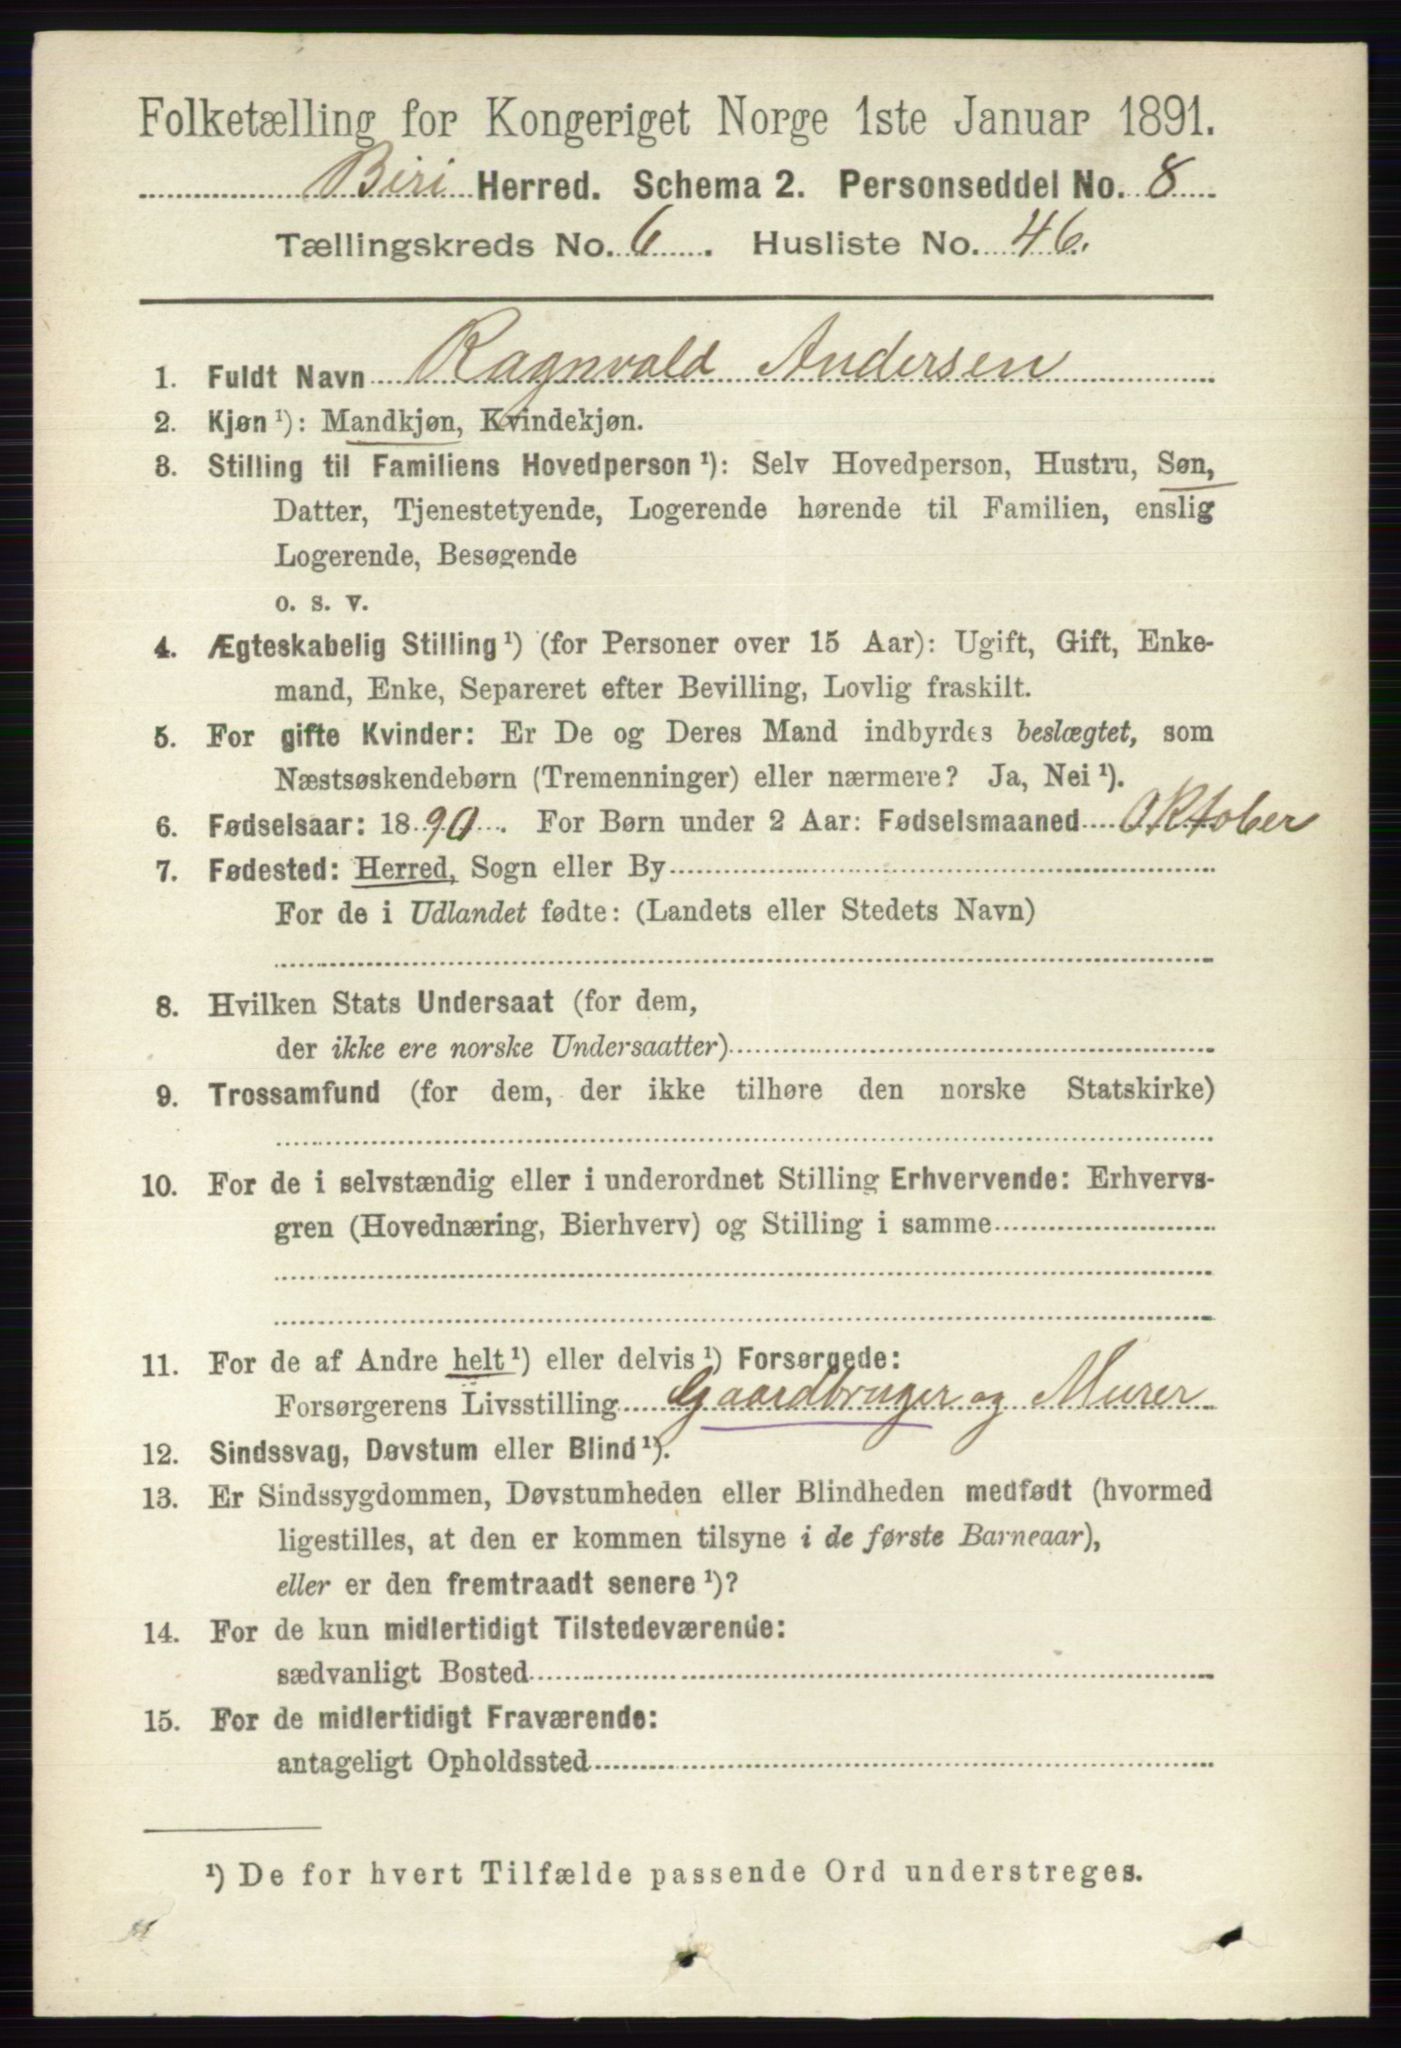 Folketælling for Kongeriget Norge 1ste Januar 1891.
Biri Herred. Schema 2. Personseddel No. 8
Tællingskreds No. 6. Husliste No. 46.
1. Fuldt Navn Ragnvald Andersen
2. Kjøn¹): Mandkjøn, Kvindekjøn.
3. Stilling til Familiens Hovedperson¹): Selv Hovedperson, Hustru, Søn,
Datter, Tjenestetyende, Logerende hørende til Familien, enslig
Logerende, Besøgende
o. s. v.
4. Ægteskabelig Stilling¹) (for Personer over 15 Aar): Ugift, Gift, Enke-
mand, Enke, Separeret efter Bevilling, Lovlig fraskilt.
5. For gifte Kvinder: Er De og Deres Mand indbyrdes beslægtet, som
Næstsøskendebørn (Tremenninger) eller nærmere? Ja, Nei¹).
6. Fødselsaar: 1890. For Børn under 2 Aar: Fødselsmaaned Oktober
7. Fødested: Herred, Sogn eller By
For de i Udlandet fødte: (Landets eller Stedets Navn)
8. Hvilken Stats Undersaat (for dem,
der ikke ere norske Undersaatter)
9. Trossamfund (for dem, der ikke tilhøre den norske Statskirke)
10. For de i selvstændig eller i underordnet Stilling Erhvervende: Erhvervs-
gren (Hovednæring, Bierhverv) og Stilling i samme
11. For de af Andre helt¹) eller delvis¹) Forsørgede:
Forsørgerens Livsstilling Gaardbruger og Murer
12. Sindssvag, Døvstum eller Blind¹).
13. Er Sindssygdommen, Døvstumheden eller Blindheden medfødt (hvormed
ligestilles, at den er kommen tilsyne i de første Barneaar),
eller er den fremtraadt senere¹)?
14. For de kun midlertidigt Tilstedeværende:
sædvanligt Bosted
15. For de midlertidigt Fraværende:
antageligt Opholdssted
¹) De for hvert Tilfælde passende Ord understreges.